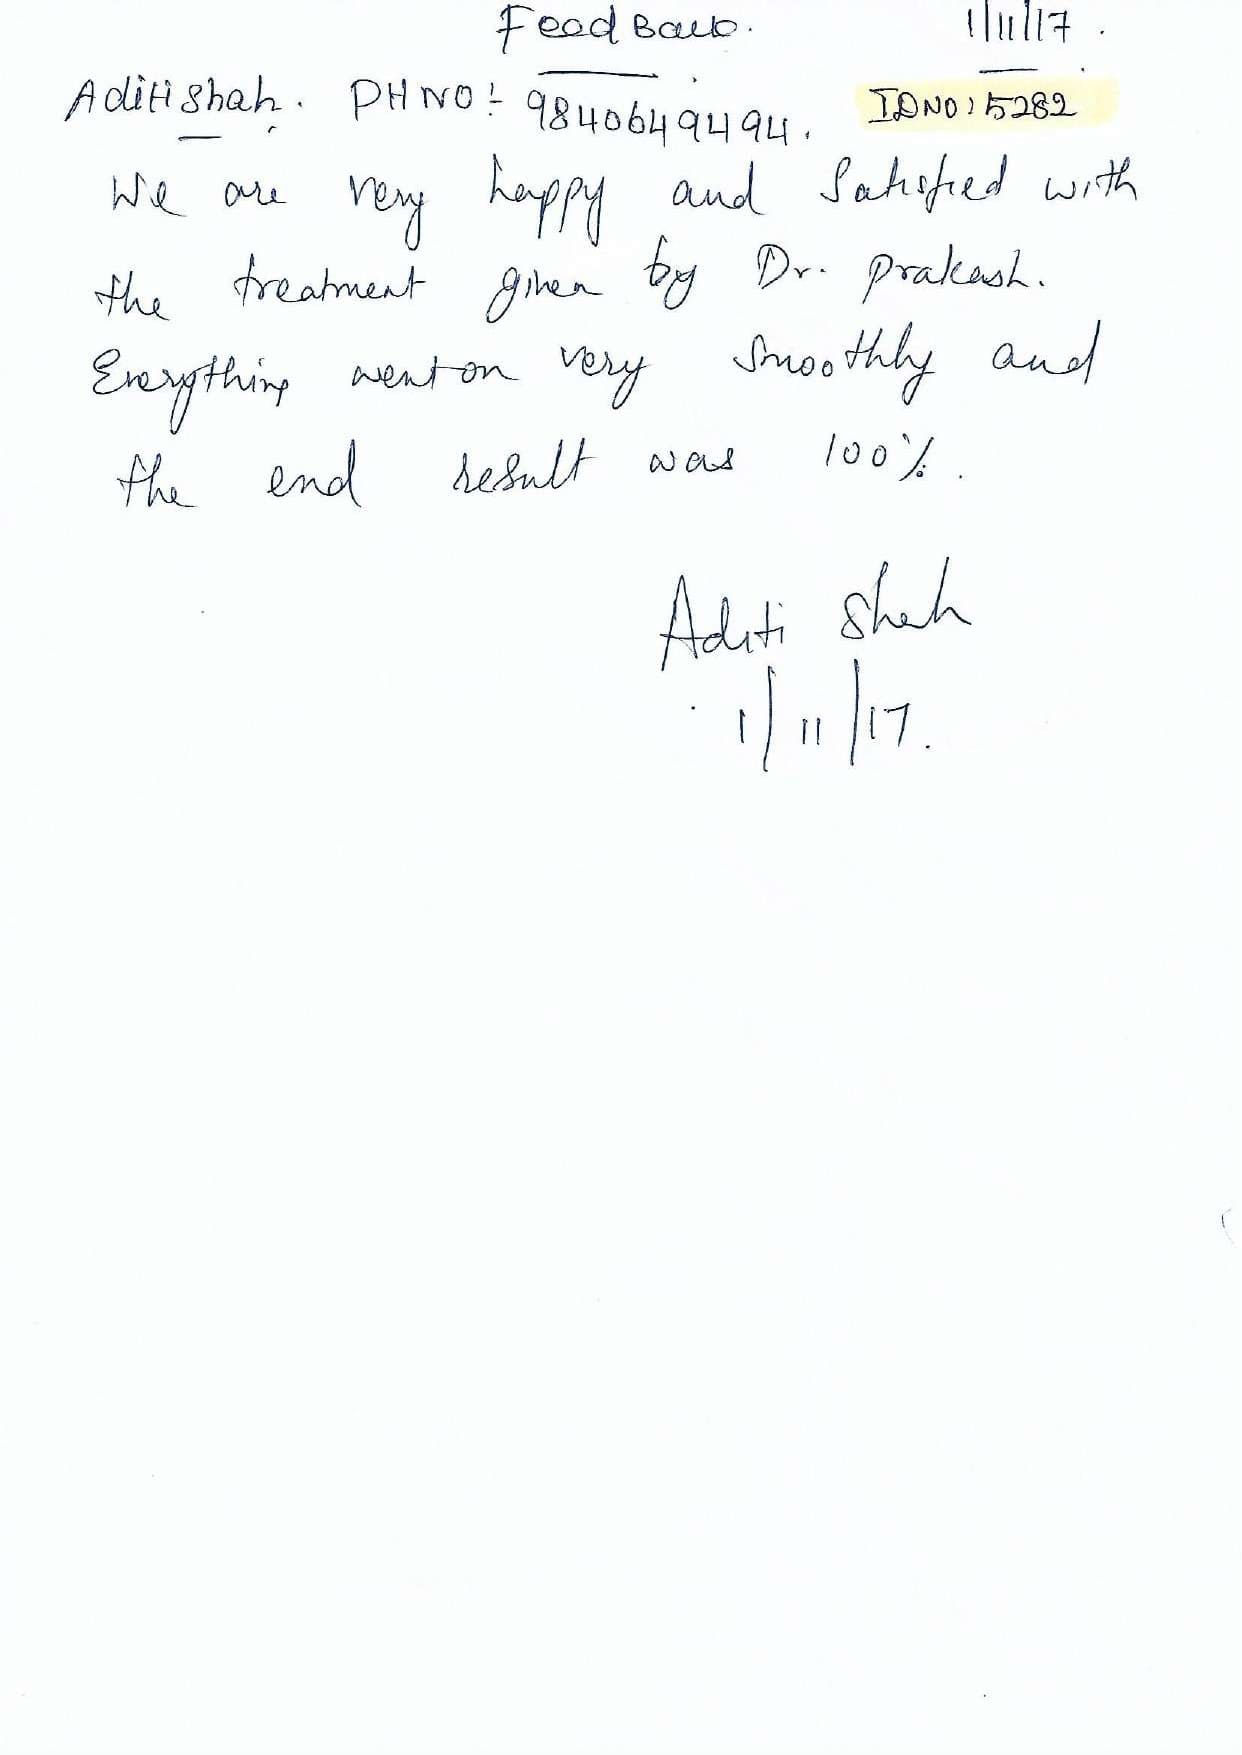 Feed Back. 1/11/17.
Aditi Shah. PH NO:- 9840649494. ID NO: 5282
We are very happy and Satisfied with
the treatment given by Dr. Prakash.
Everything went on very smoothly and
the end result was 100%.
Aditi Shah
1/11/17.